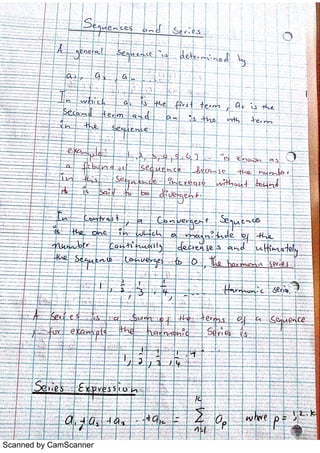 Sequences and Series
A general Sequence is determined by
a₁, a₂, aₙ ....
In which a₁ is the first term, a₂ is the
second term and aₙ is the nth term
in the sequence
example: 1, 2, 3, 4, 5, 6, } is known as
a sequence because the number
in this sequence increase without bound
it is said to be divergent.
In Contrast, a Convergent Sequence
is the one in which a magnitude of the
number Continually decreases and ultimately
the Sequence Converges to 0, the harmonic series
1, 1/2, 1/3, 1/4, .... Harmonic series.
A series is a Sum of the terms of a Sequence
for example the harmonic Series is
1, 1/2, 1/3, 1/4 +
Series Expression
a₁ + a₂ + a₃ ... + aₖ = Σ aₚ where p = 1,2..k
Scanned by CamScanner